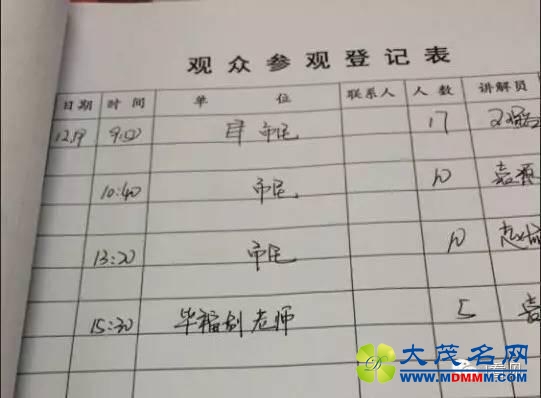 观众参观登记表
日期 时间 单位 联系人 人数 讲解员
12.19 9:50 市民 17
10:40 市民 10
13:20 市民 10
15:30 毕福剑老师 5
大茂名网
WWW.MDMMM.COM